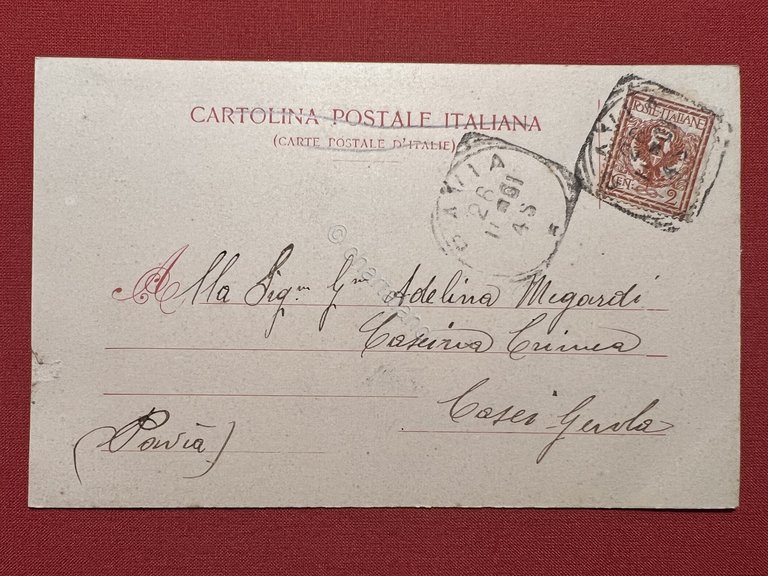 CARTOLINA POSTALE ITALIANA
(CARTE POSTALE D'ITALIE)
POSTE ITALIANE
CEN. 2
PAVIA
26
Alla Sig.na G.na Adelina Megardi
Cascina Crimea
Casei Gerola
(Pavia)